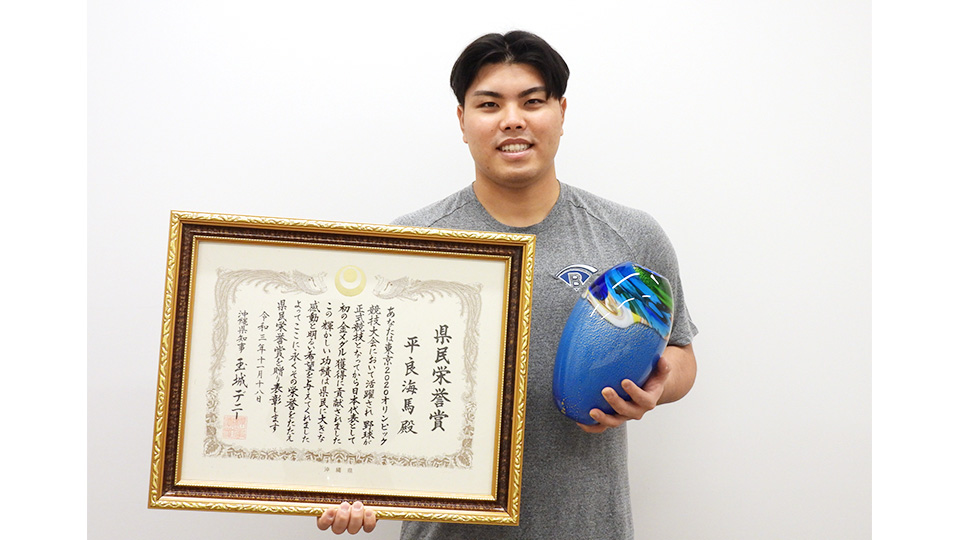 県民栄誉賞
平良海馬 殿
あなたは東京2020オリンピック
競技大会において活躍され 野球が
正式競技となってから日本代表として
初の金メダル獲得に貢献されました
この輝かしい功績は県民に大きな
感動と明るい希望を与えてくれました
よってここに永くその栄誉をたたえ
県民栄誉賞を贈り表彰します
令和三年十一月十八日
沖縄県知事 玉城デニー
沖縄県
B